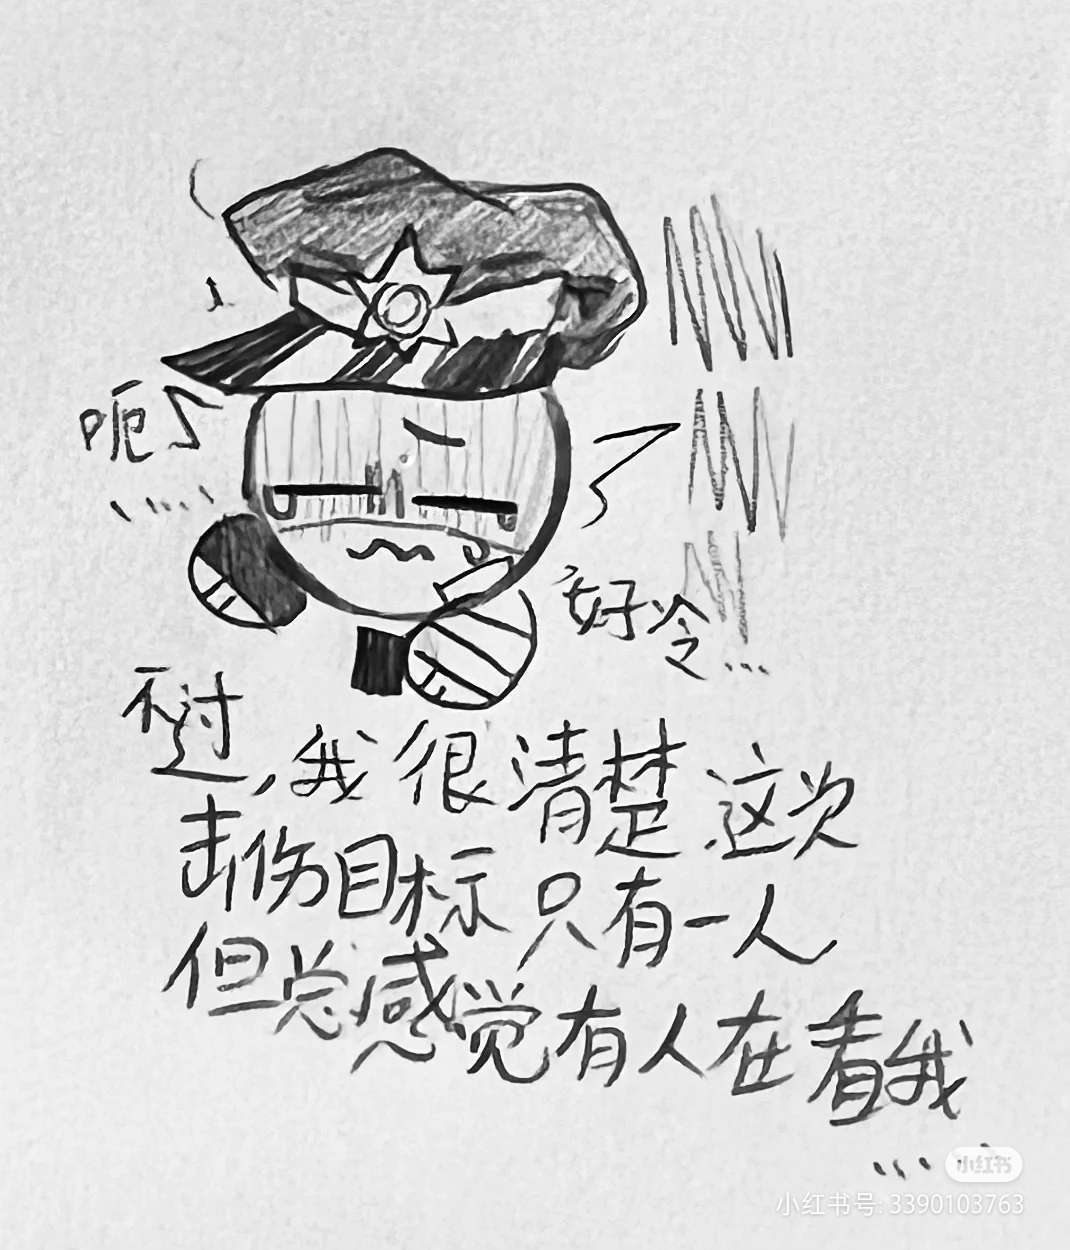 呃
……
好冷…
不过,我很清楚这次
击伤目标只有一人
但总感觉有人在看我
……
小红书
小红书号:3390103763